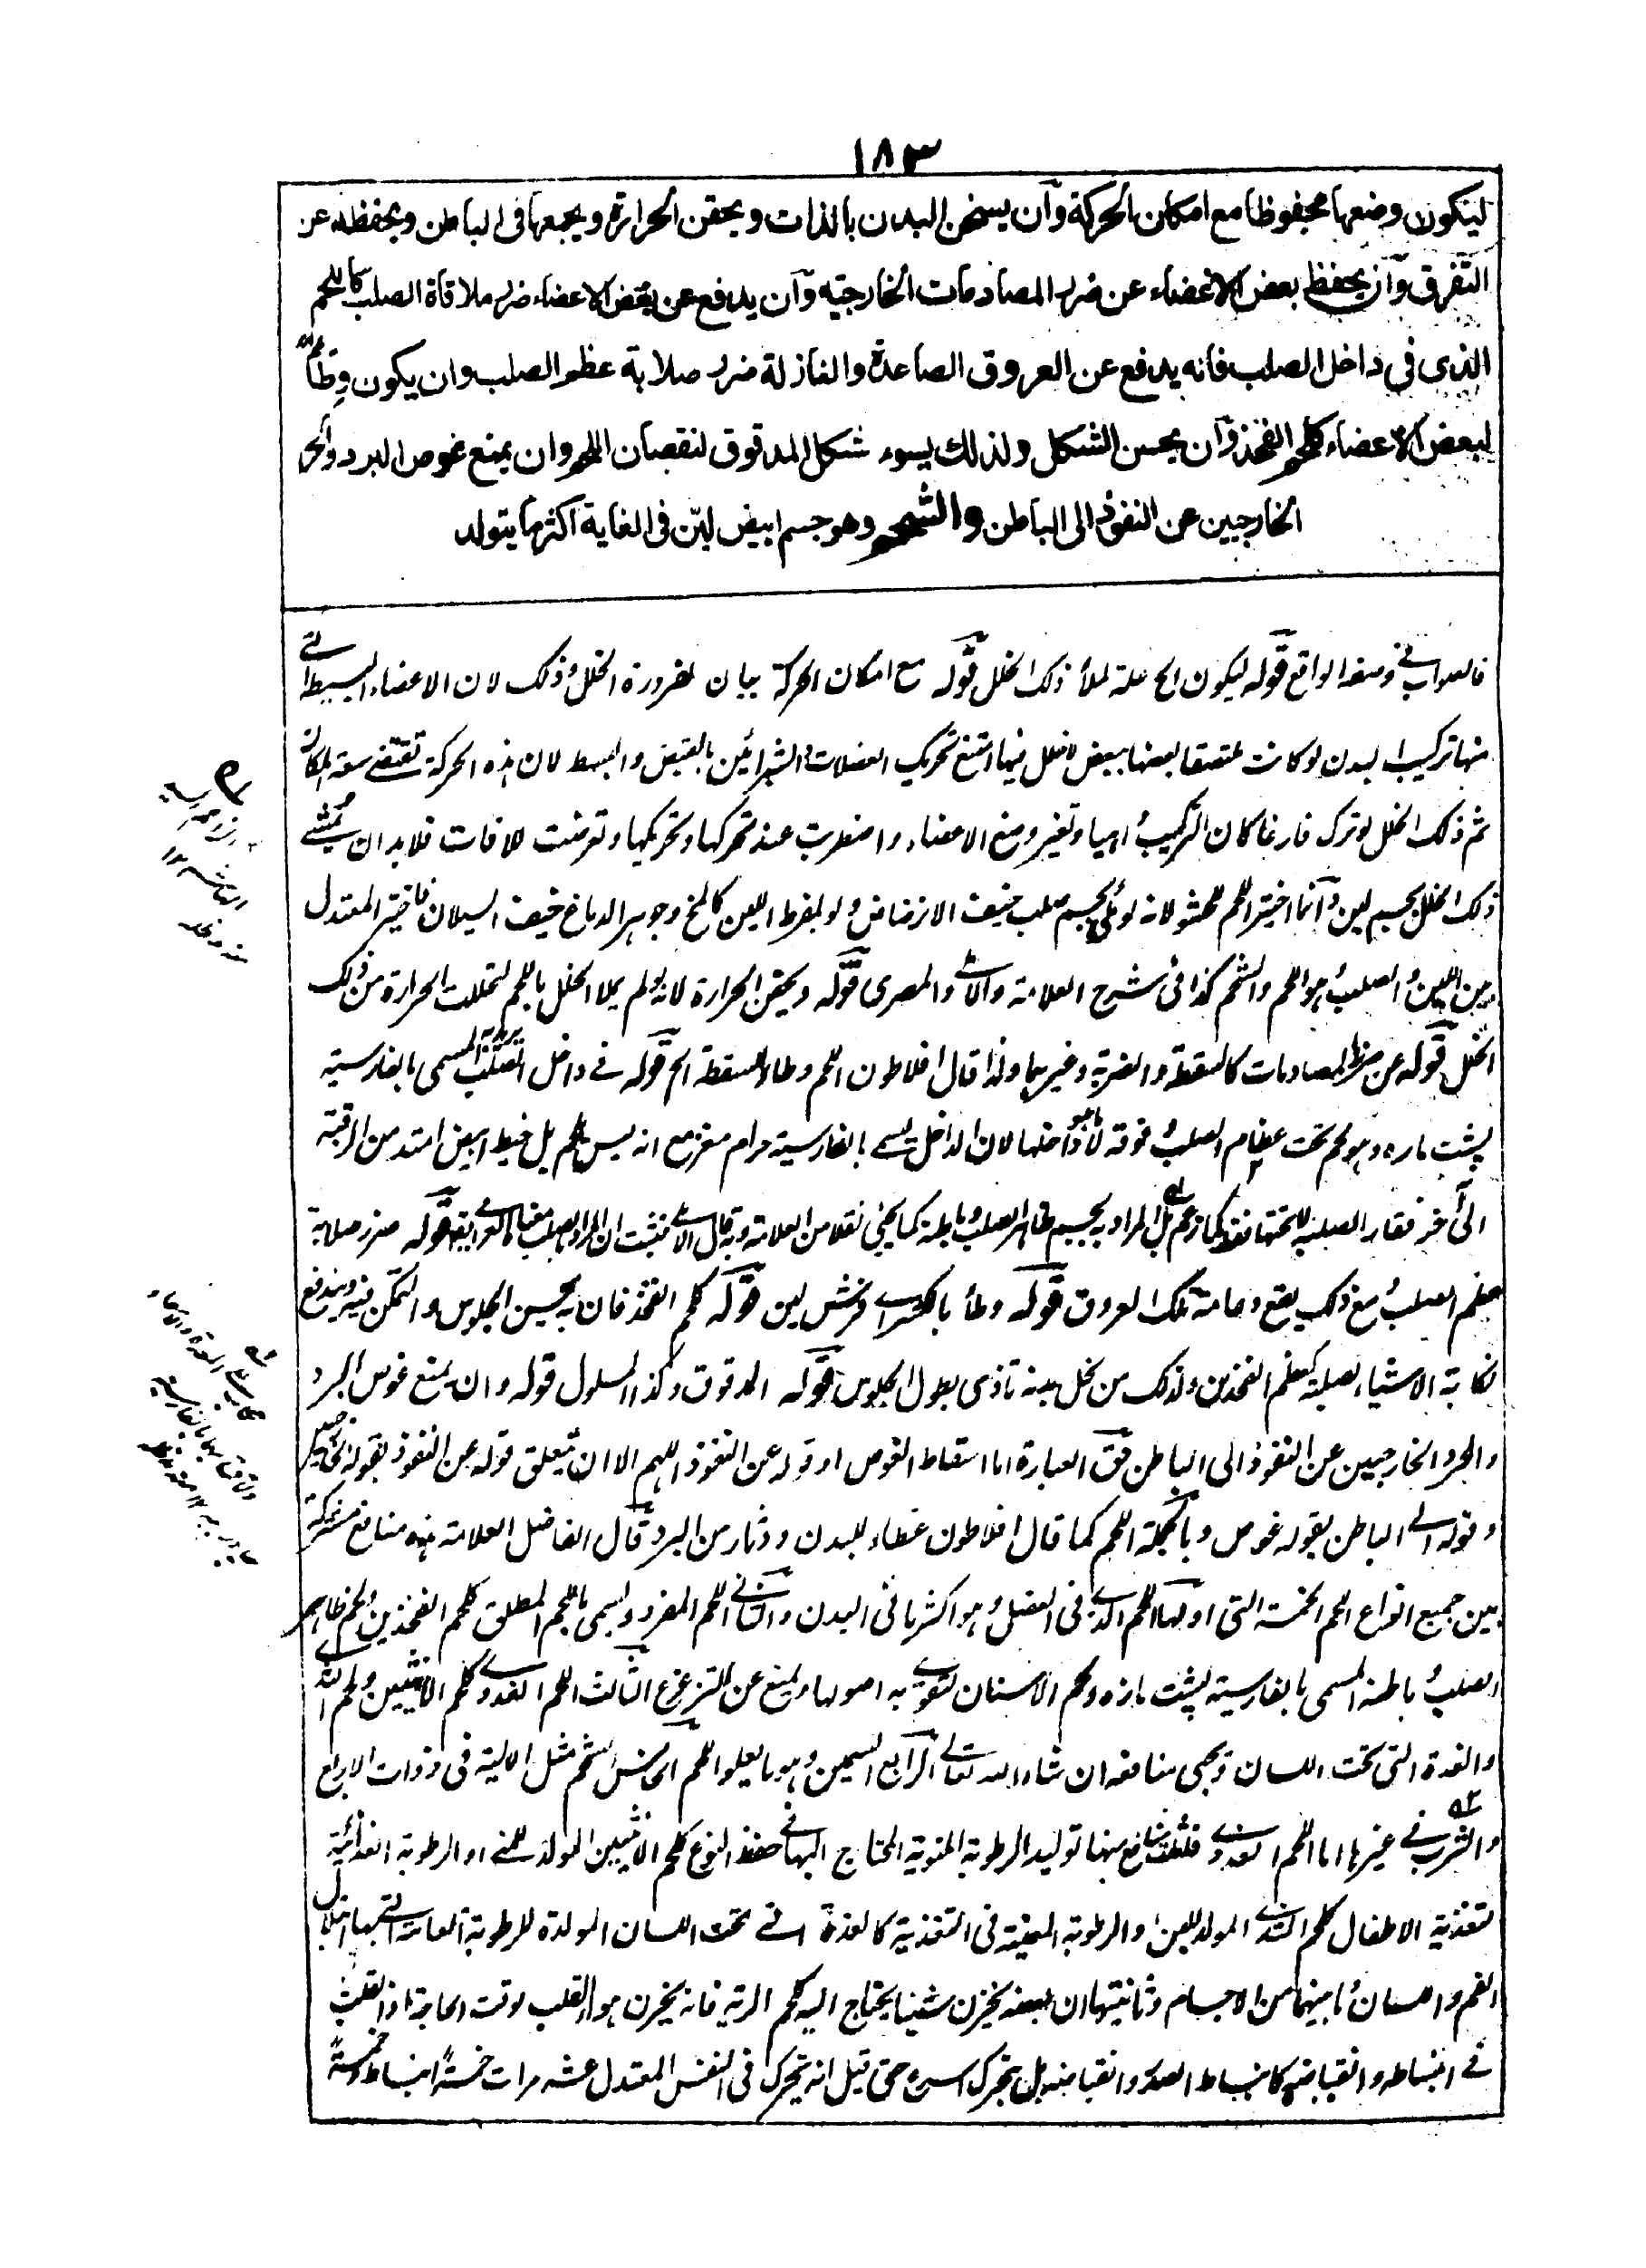 ١٨٣
ليكون وضعها محفوظا مع امكان الحركة وآن يسخن البدن بالذات ويحقن الحرارة ويجمعها فى الباطن ويحفظه عن
التفرق وآن يحفظ بعض الاعضاء عن ضرر المصادمات الخارجية وآن يدفع عن بعض الاعضاء ضرر ملاقاة الصلب كاللحم
الذى في داخل الصلب فانه يدفع عن العروق الصاعدة والنازلة ضرر صلابة عظم الصلب وان يكون وطاء
لبعض الاعضاء كلحم الفخذ وآن يحسن الشكل ولذلك يسوء شكل المدقوق لنقصان اللحم وان يمنع غوص البرد والحر
الخارجيين عن النفوذ الى الباطن والشحم وهو جسم ابيض ليّن فى الغاية اكثرها يتولد
قوله ليكون الخ علة لملأ ذلك الخلل قوله مع امكان الحركة بيان لضرورة الخلل وذلك لان الاعضاء البسيطة التے
منها تركيب البدن لو كانت ملتصقا بعضها ببعض لا خلل فيها امتنع تحريك العضلات والشرائين بالقبض والبسط لان هذه الحركة تقتضے سعة المكان
ثم ذلك الخلل لو ترك فارغا كان التركيب واهيا وتغير وضع الاعضاء واضطربت عند تحركها وتحريكها وتعرضت للآفات فلا بد ان يحشے
ذلك الخلل بجسم لين وآنما اختير اللحم للحشو لانه لو ملئ بجسم صلب خيف الارضاض ولو لمفرط اللين كالمخ وجوهر الدماغ خيف السيلان فاختير المعتدل
بين اللين والصلب وهو اللحم والشحم كذا فى شرح العلامة والآملے والمصرى قوله ويحقن الحرارة لانه لو لم يملأ الخلل باللحم لتحللت الحرارة من ذلك
الخلل قوله عن ضرر المصادمات كالسقطة والضربة وغيرهما ولذا قال افلاطون اللحم وطاء للسقطة الخ قوله فے داخل الصلب المسمى بالفارسية
پشت مازه وهو لحم تحت عظام الصلب فوقه لا ما هو داخلها لان الداخل يسمے بالفارسية حرام مغز مع انه ليس بلحم بل خيط ابيض امتد من الرقبة
الى آخر فقار الصلب قوله ضرر صلابة
عظم الصلب مع ذلك يقع دعامة لتلك العروق قوله وطأ بالكسر اے فرش لين قوله كلحم الفخذ فان به يحسن الجلوس والتمكن فيه ويندفع
نكاية الاشياء الصلبة كعظم الفخذين ولذلك من نحل بدنه تاذى بطول الجلوس قوله المدقوق وكذا المسلول قوله وان يمنع غوص البرد
والحر الخارجيين عن النفوذ الى الباطن حق العبارة اما اسقاط الغوص او قوله عن النفوذ اللهم الا ان يتعلق قوله عن النفوذ بقوله
وقوله الے الباطن بقوله غوص وبالجملة اللحم كما قال افلاطون غطاء للبدن ودثار من البرد قال الفاضل العلامة هذه منافع مشتركة
بين جميع انواع اللحم الخمسة التى اولها اللحم الذے فى العضل وهو اكثرها فى البدن والثانے اللحم المفرد ويسمى باللحم المطلق كلحم الفخذين ولحم ظاهر
الصلب وباطنه المسمى بالفارسية پشت مازه ولحم الاسنان لتقوے به اصولها ويمنع عن التزعزع الثالث اللحم الغددے كلحم الانثيين ولحم الثدے
والغدة التى تحت اللسان وتجى منافعه ان شاء الله تعالے الرابع السمين وهو ما يعلو اللحم الخامس الشحم مثل الالية فى ذوات الاربع
والثرب فے غيرها اما اللحم الغددے فلثلث منافع منها توليد الرطوبة المنوية المحتاج اليها فے حفظ النوع كلحم الانثيين المولد للمنے او الرطوبة الغذائية
لتغذية الاطفال كلحم الثدے المولد للبن والرطوبة المعينة فى التغذية كالغدة التے تحت اللسان المولدة للرطوبة اللعابية التے بها ابتلال
الفم واللسان وما بينهما من الاجسام وثانيتها ان بعضه يخزن شيئا يحتاج اليه كلحم الرية فانه يخزن هواء القلب لوقت الحاجة اذ القلب
فے انبساطه وانقباضه كانبساط الصدر وانقباضه بل يتحرك اسرع حتى قيل انه يتحرك فى النفس المعتدل عشر مرات خمسة انبساط وخمسة